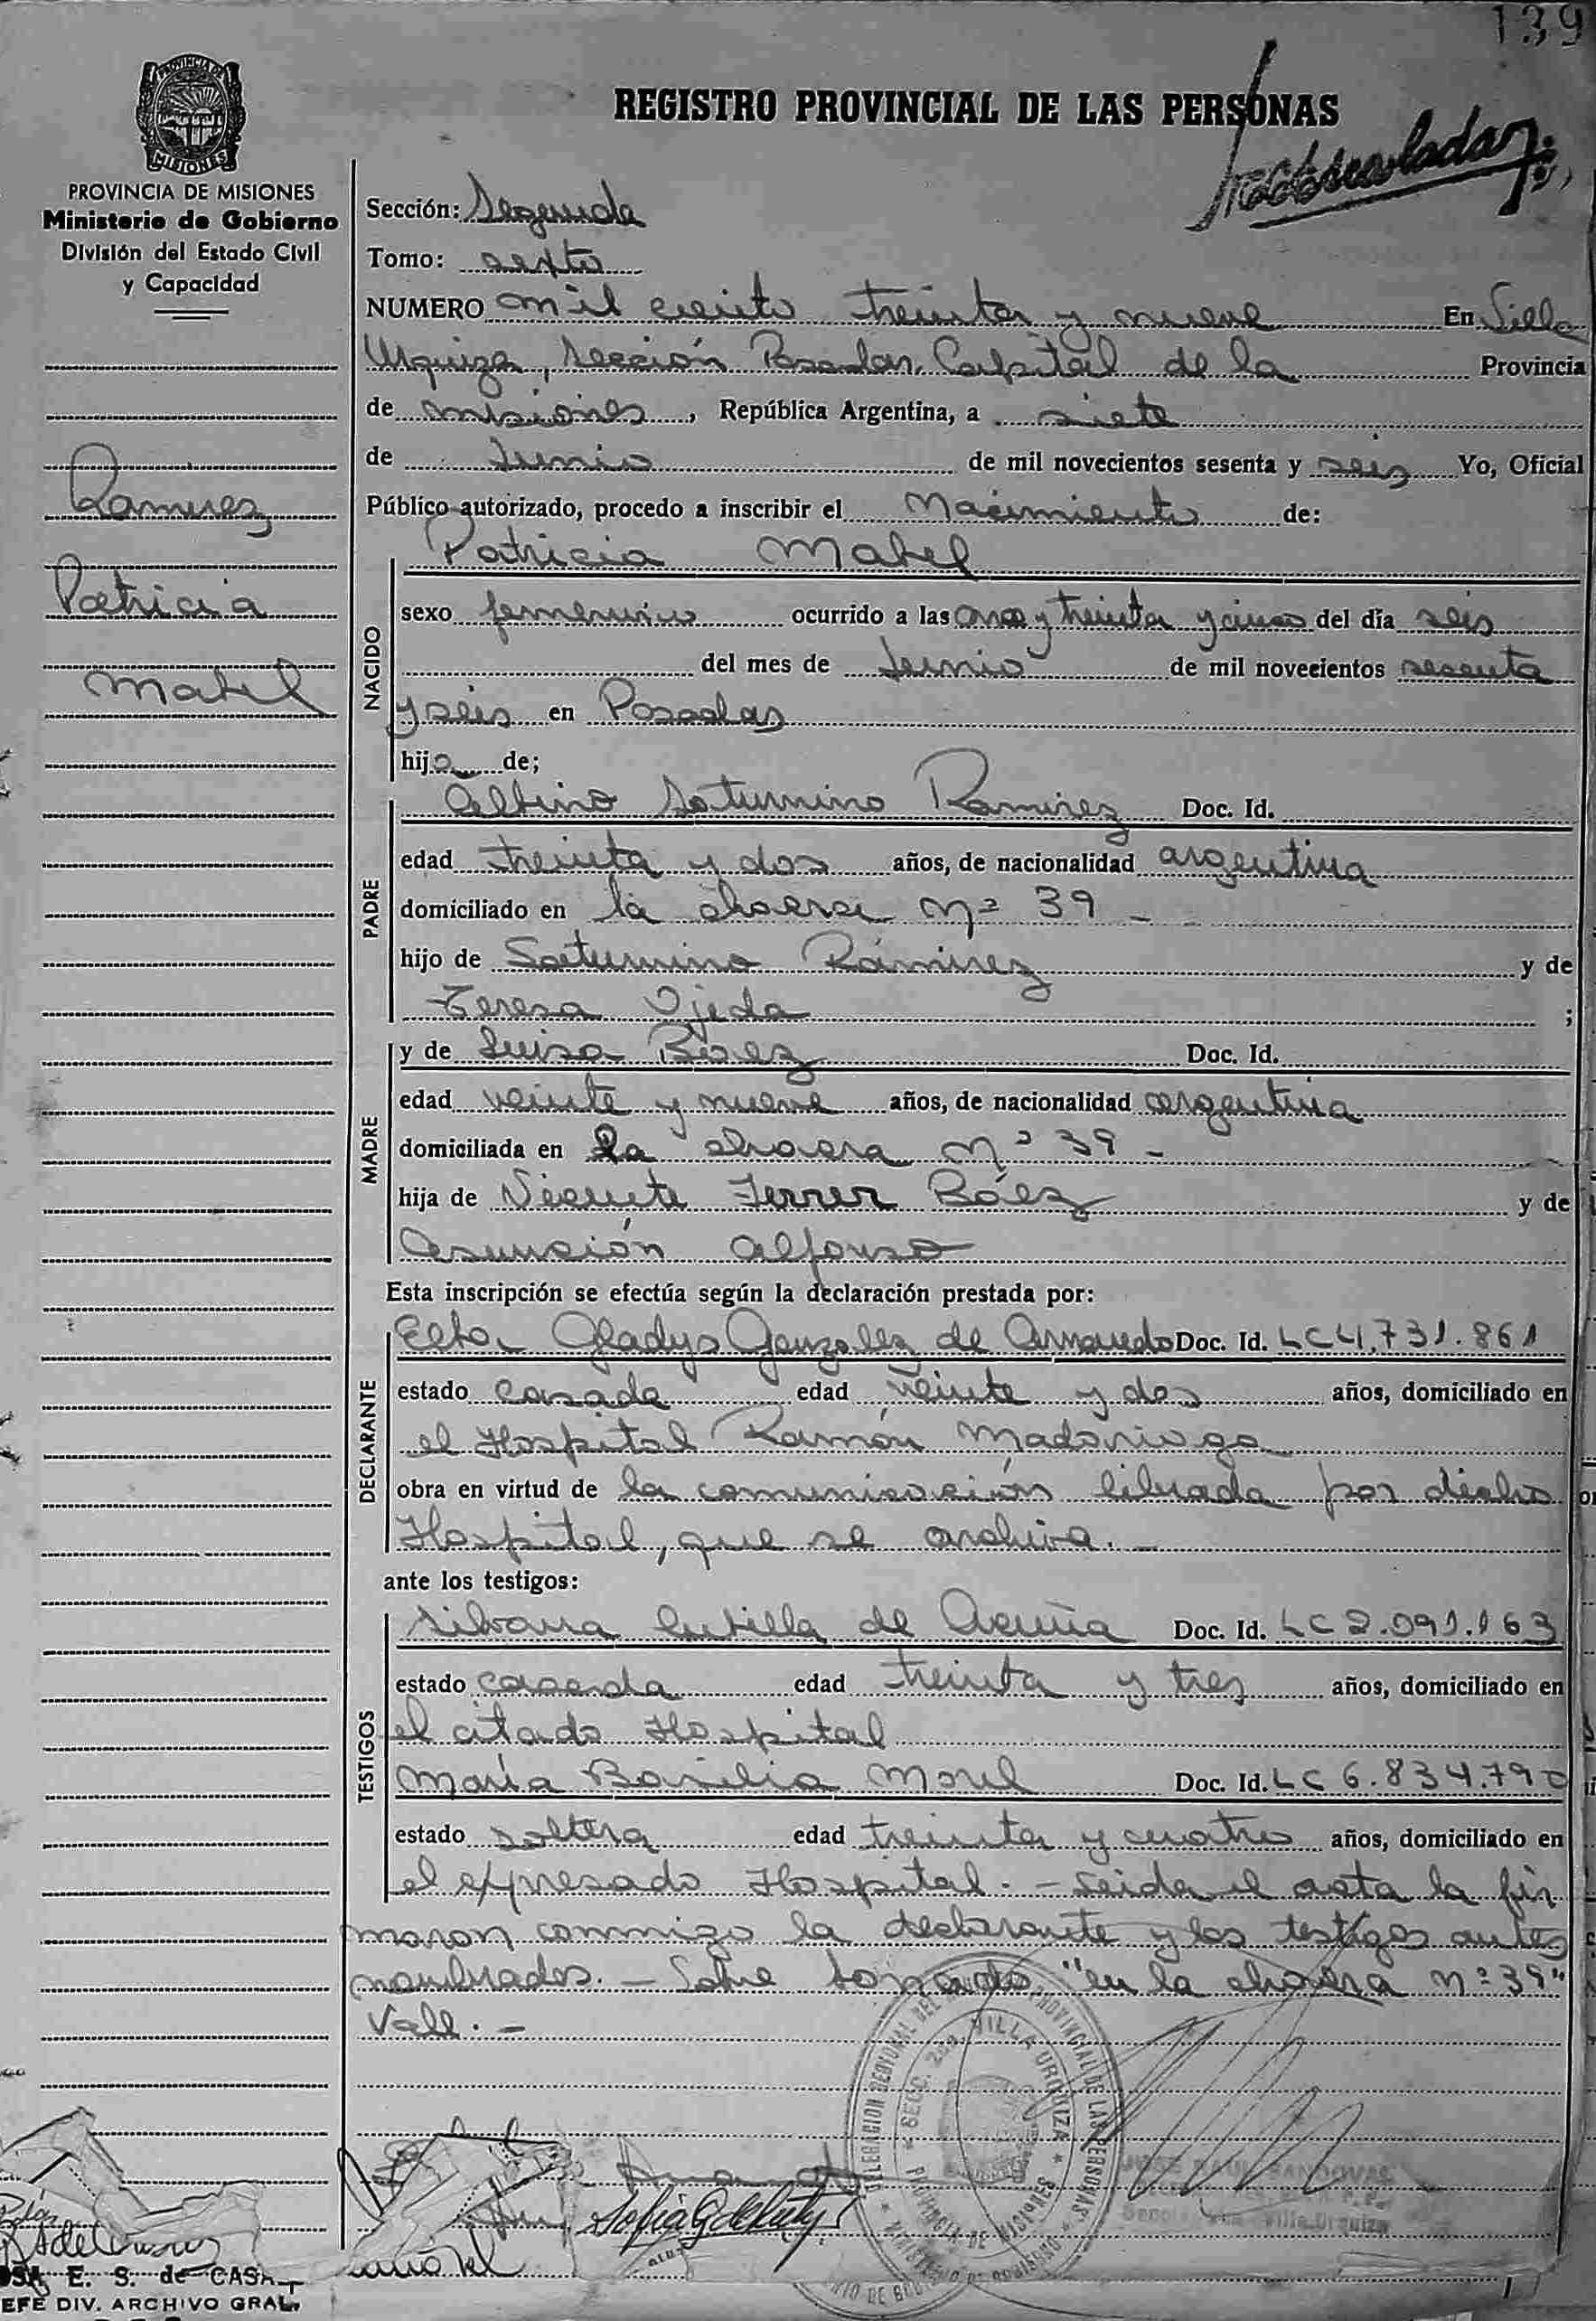 139
REGISTRO PROVINCIAL DE LAS PERSONAS
PROVINCIA DE MISIONES
Ministerio de Gobierno
División del Estado Civil
y Capacidad
Ramirez
Patricia
Mabel
Sección: Segunda
Tomo: sexto
NUMERO mil ciento treinta y nueve En Villa
Urquiza, Sección Posadas, Capital de la Provincia
de Misiones, República Argentina, a siete
de Junio de mil novecientos sesenta y seis Yo, Oficial
Público autorizado, procedo a inscribir el Nacimiento de:
NACIDO
Patricia Mabel
sexo femenino ocurrido a las once y treinta y cinco del día seis
del mes de Junio de mil novecientos sesenta
y seis en Posadas
hija de;
PADRE
Albino Saturnino Ramirez Doc. Id.
edad treinta y dos años, de nacionalidad argentina
domiciliado en la chacra nº 39 -
hijo de Saturnino Rámirez y de
Teresa Ojeda ;
MADRE
y de Luisa Báez Doc. Id.
edad veinte y nueve años, de nacionalidad argentina
domiciliada en la chacra nº 39 -
hija de Vicente Ferrer Báez y de
Asunción Alfonso
Esta inscripción se efectúa según la declaración prestada por:
DECLARANTE
Elba Gladys Gonzalez de Doc. Id. LC 4.731.861
estado casada edad veinte y dos años, domiciliado en
el Hospital Ramón Madariaga
obra en virtud de la comunicación librada por dicho
Hospital, que se archiva. -
ante los testigos:
TESTIGOS
Silvana de Acuña Doc. Id. LC 2.091.163
estado casada edad treinta y tres años, domiciliado en
el citado Hospital
María Basilia Morel Doc. Id. LC 6.834.790
estado soltera edad treinta y cuatro años, domiciliado en
el expresado Hospital. - Leida el acta la fir
maron conmigo la declarante y los testigos antes
nombrados. - Sobre borrado "en la chacra nº 39"
Vale. -
SECC. 2da. VILLA URQUIZA
PROVINCIA DE MISIONES
E. S. de CASA
EFE DIV. ARCHIVO GRAL.